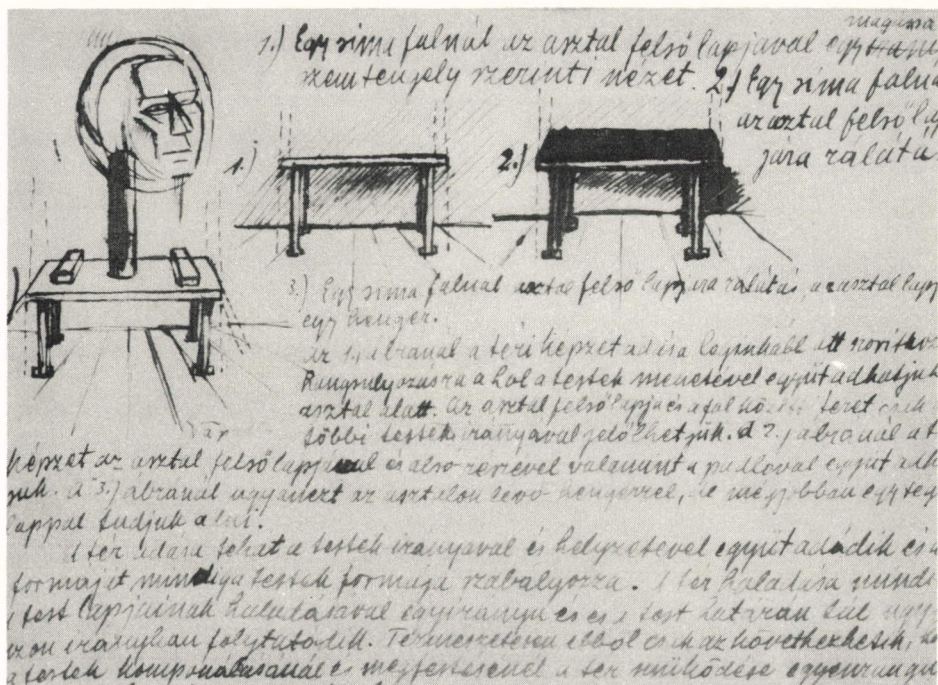 1.) Egy sima falnál az asztal felső lapjával egy magassá
szemtengely szerinti nézet. 2.) Egy sima falná
az asztal felső lap
jára rálátá
1.)
2.)
3.) Egy sima falnál asztal felső lapjára rálátás, az asztal lapj
egy henger.
Az 1. ábránál a téri képzet adása leginkább ott
Rangsulyozásra a hol a testek menetével együt adhatjuk
asztal alatt. Az asztal felső lapja és a fal közötti teret csak
többi testek irányával jelölhetjük. A 2.) ábránál a t
képzet az asztal felső lapjával és alsó részével valamint a padlóval együt adh
juk. A 3.) ábránál ugyanezt az asztalon levő hengerrel, de mégjobban egy
lappal tudjuk adni.
A tér adása tehát a testek irányával és helyzetével együt adódik és a
formáját mindig a testek formája szabályozza. A tér haladása minde
test lapjainak haladásával egyirányu és a test határán túl ugy
azon irányban folytatódik. Természetesen ebből csak az következhetik,
a testek komponálásánál és megfestésénél a tér működése egyenrangu